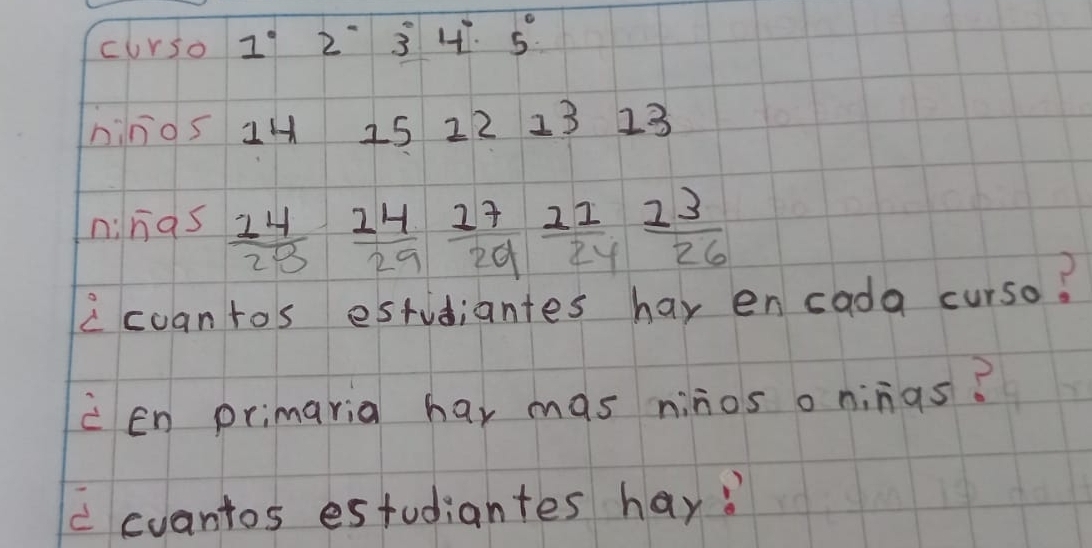 curso 1° 2° 3° 4° 5°
niños 14 15 12 13 13
niñas 14 14 17 11 13
28 29 29 24 26
¿cuantos estudiantes hay en cada curso?
¿En primaria hay mas niños o niñas?
¿cuantos estudiantes hay?